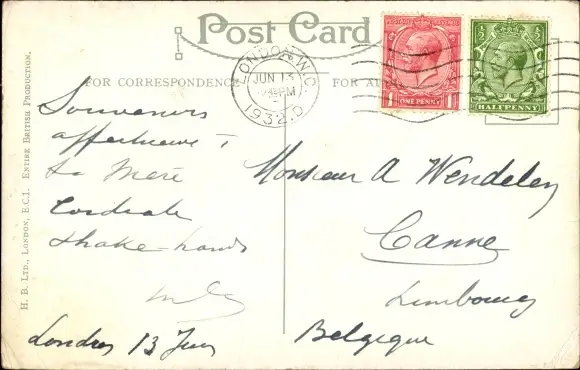 Post Card
FOR CORRESPONDENCE
FOR AD
LONDON. W.C.
JUN 13
PM
1932. D
POSTAGE REVENUE
ONE PENNY
HALFPENNY
H. B. LTD., LONDON, E.C.1. ENTIRE BRITISH PRODUCTION.
Souvenirs
affectueux
La Mere
Cordiale
shake-hands
Londres 13 Juin
Monsieur A Wendelen
Canne
Limbourg
Belgique